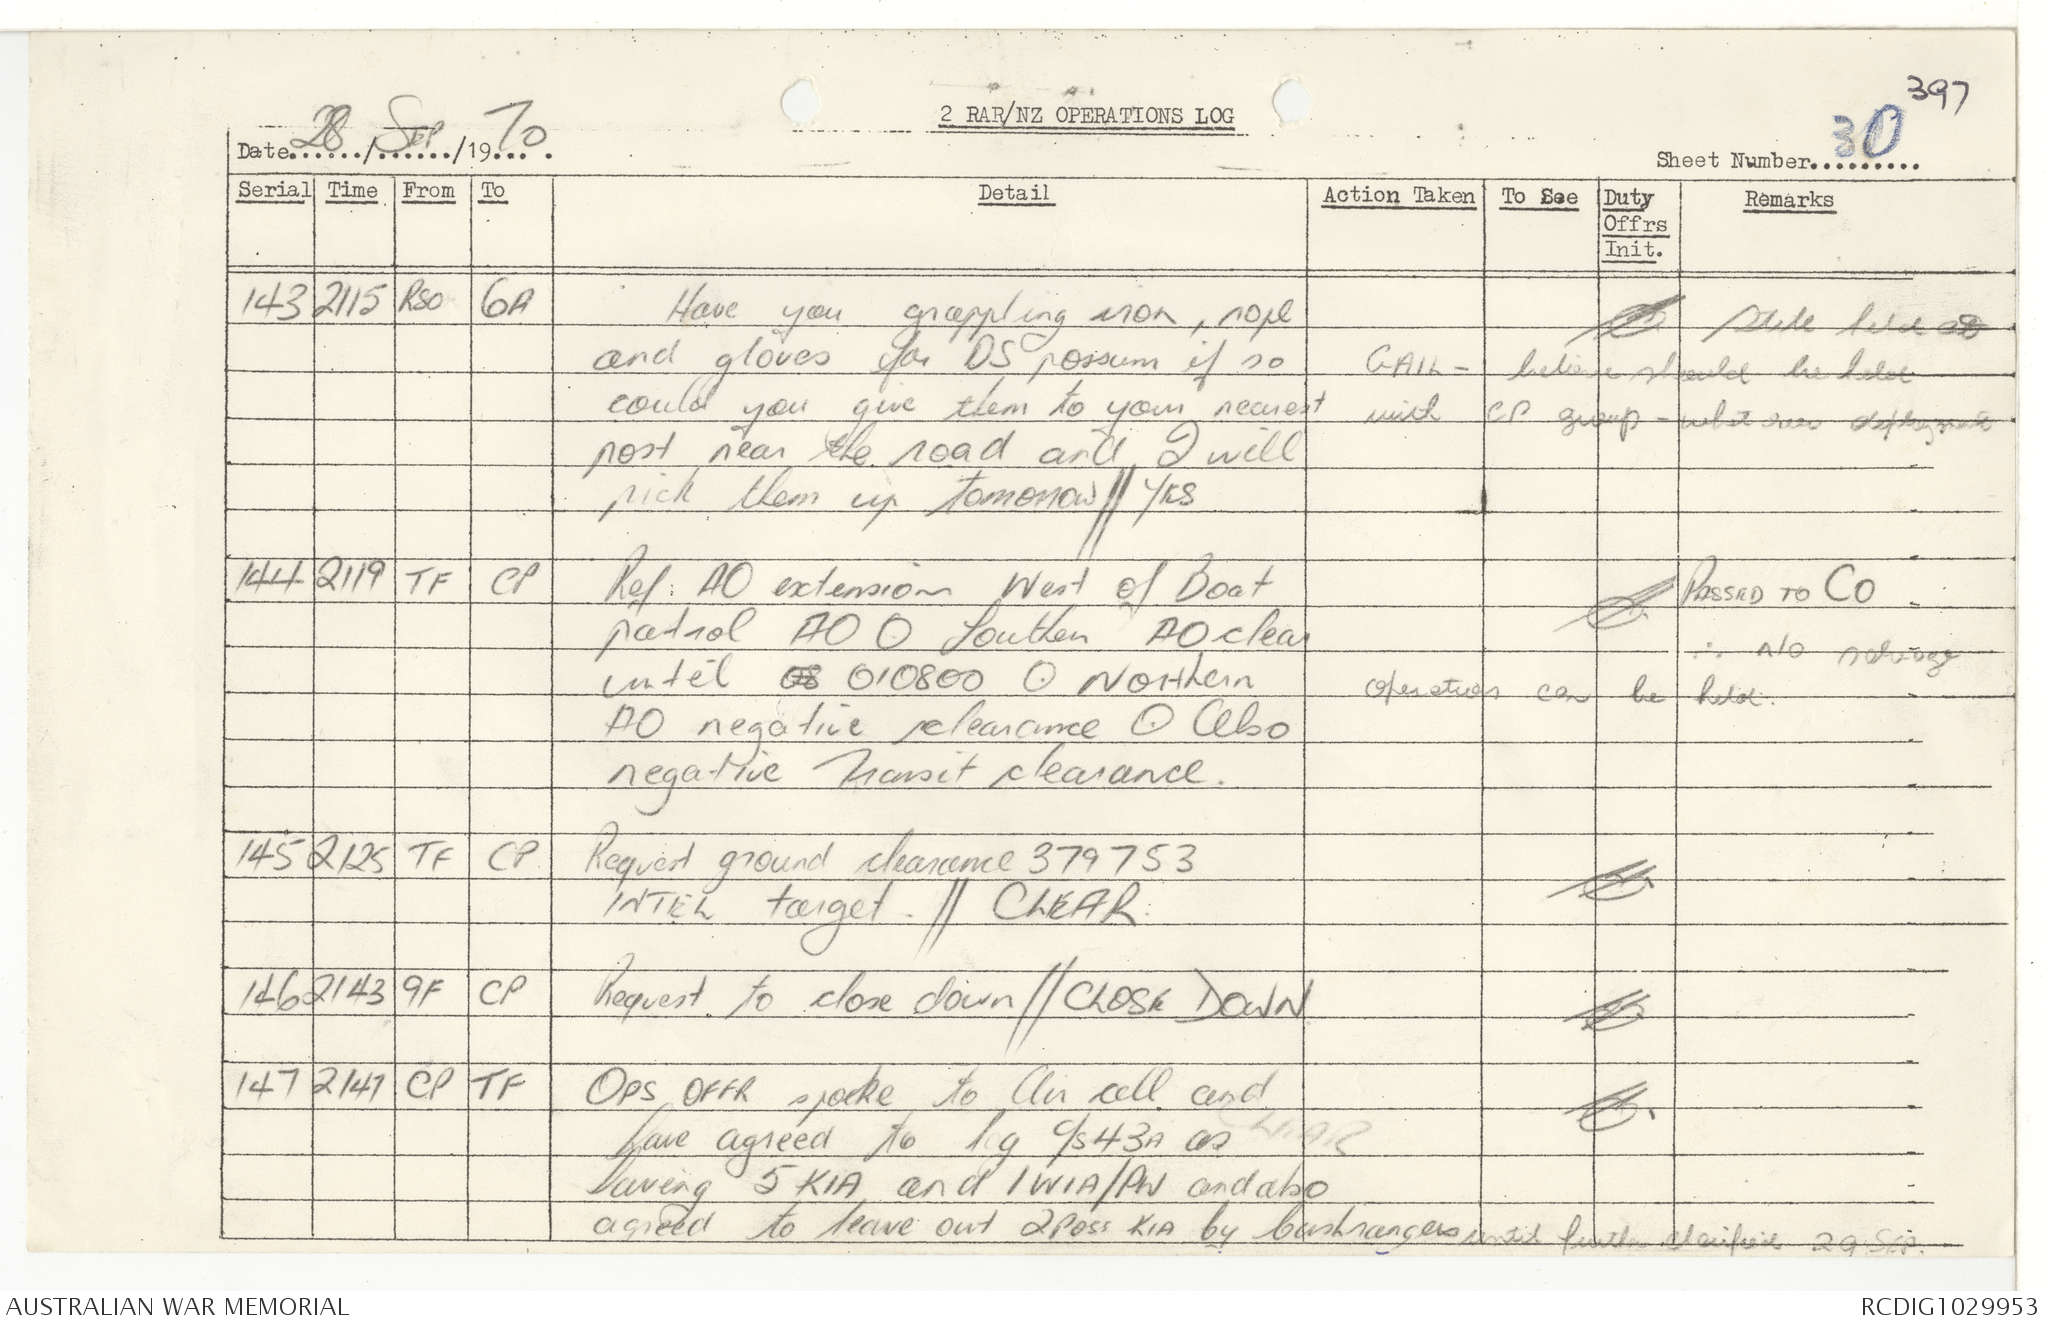 397
2 RAR/NZ OPERATIONS LOG
Date 28/Sep/1970
Sheet Number 30
Serial Time From To Detail Action Taken To See Duty Offrs Init. Remarks
143 2115 RSO 6A Have you grappling iron, rope
and gloves for DS possum if so GAIL - believe should be held
could you give them to your nearest with CP group - deployment
post near the road and I will
pick them up tomorrow // YES
144 2119 TF CP Ref: AO extension West of Boat PASSED TO CO
patrol AO O Southern AO clear ∴ NO
until 08 010800 O Northern operations can be held.
AO negative clearance O Also
negative Transit clearance.
145 2125 TF CP Request ground clearance 379753
INTEL target. // CLEAR.
146 2143 9F CP Request to close down // CLOSE DOWN
147 2147 CP TF OPS OFFR spoke to Air cell and
have agreed to log c/s 43A as
having 5 KIA and 1 WIA/PW and also
agreed to leave out 2 POSS KIA by bushrangers until further clarified 29 SEP.
AUSTRALIAN WAR MEMORIAL
RCDIG1029953